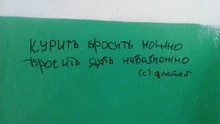 КУРИТЬ БРОСИТЬ МОЖНО
БРОСИТЬ ДУТЬ НЕВОЗМОЖНО
(с)